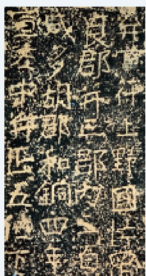 弁官符上野國片
良郡并三郡内三百
成多胡郡和銅四年
宣左中弁正五位下